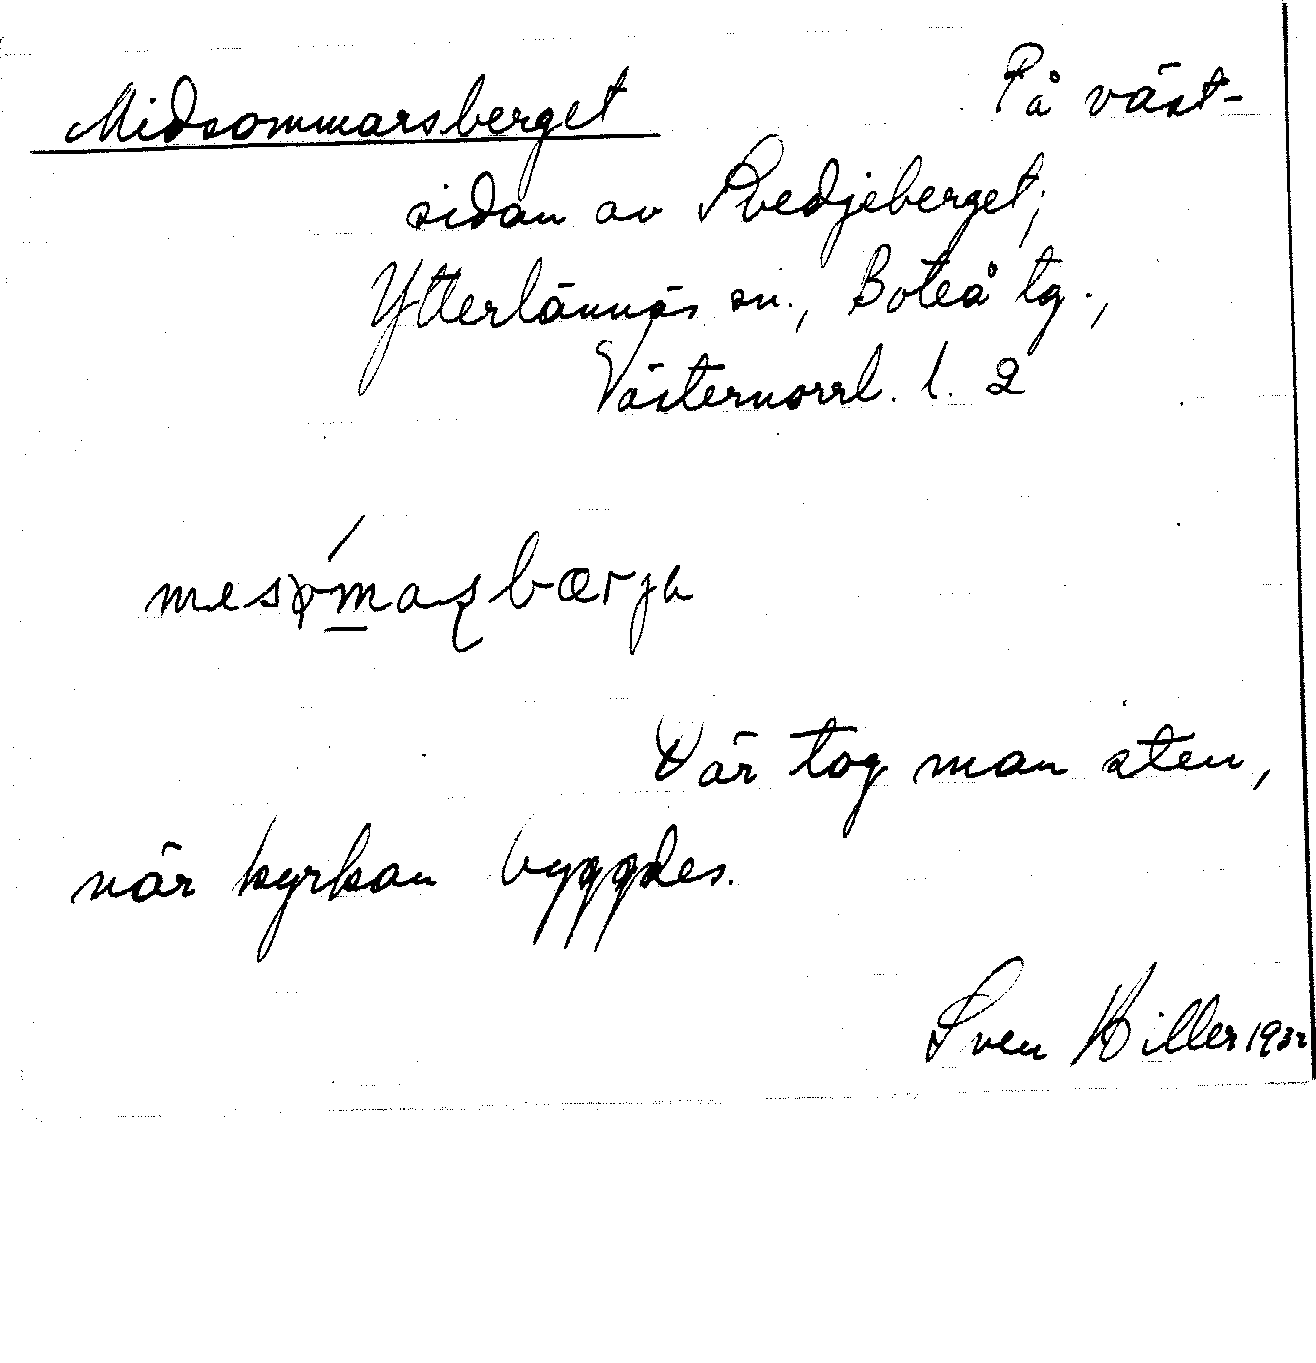 Midsommarsberget På väst-
sidan av Svedjeberget,
Ytterlännäs sn., Boteå tg.,
Västernorrl. l. 2
Där tog man sten,
när kyrkan byggdes.
Sven Hiller 1932